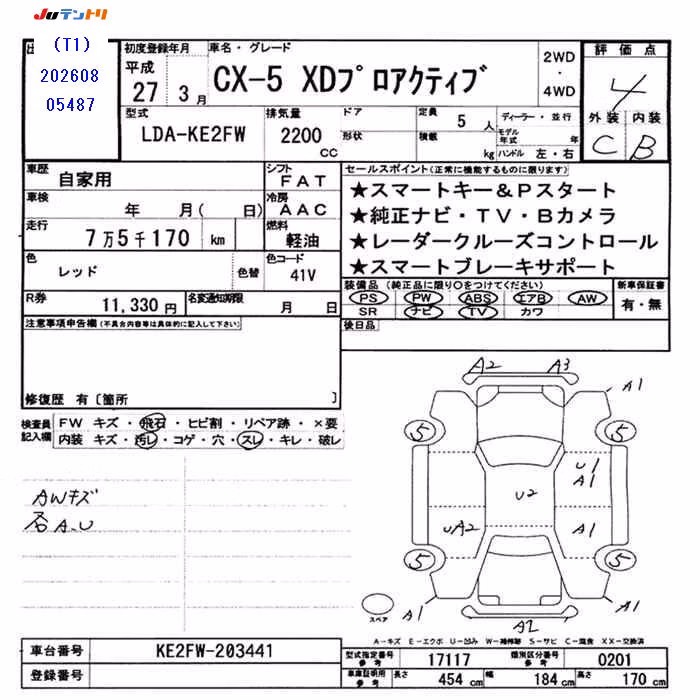 JUテントリ
(T1)
202608
05487
初度登録年月
平成
27年 3月
車名・グレード
CX-5 XDプロアクティブ
2WD
・
4WD
評価点
4
外装 内装
C B
型式
LDA-KE2FW
排気量
2200
CC
ドア
形状
定員
5 人
積載
kg
ディーラー・並行
モデル年式 年
ハンドル 左・右
車歴
自家用
シフト
FAT
車検
年 月( 日)
冷房
AAC
走行
7万5千170 km
燃料
軽油
色
レッド
色替
色コード
41V
R券
11,330 円
名変通知期限
月 日
セールスポイント(正常に機能するものに限ります)
★スマートキー&Pスタート
★純正ナビ・TV・Bカメラ
★レーダークルーズコントロール
★スマートブレーキサポート
装備品(純正品に限り○をつけてください)
PS PW ABS エアB AW
SR ナビ TV カワ
新車保証書
有・無
後日品
注意事項申告欄(不具合内容等は具体的に記入して下さい)
修復歴 有〔箇所 〕
検査員
記入欄
FW キズ・飛石・ヒビ割・リペア跡・×要
内装 キズ・汚レ・コゲ・穴・スレ・キレ・破レ
AWキズ
各A.U
A2 A3
A1
5 5
U1
A1
U2
UA2
A1
5 5
A1
A2
A1
スペア
A-キズ E-エクボ U-凹み W-補修跡 S-サビ C-腐食 XX-交換済
車台番号
KE2FW-203441
登録番号
型式指定番号
参考
17117
類別区分番号
参考
0201
車庫証明用
参考
長さ 454 cm
幅 184 cm
高さ 170 cm